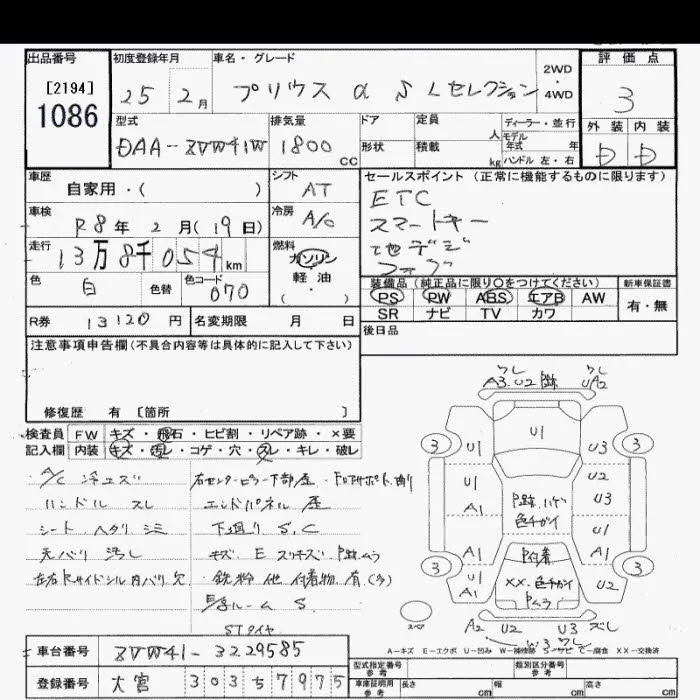 出品番号
[2194]
1086
初度登録年月
25 2月
車名・グレード
プリウス α S Lセレクション
2WD・4WD
評価点
3
型式
DAA-ZVW41W
排気量
1800 CC
ドア
形状
定員 人
積載 kg
ディーラー・並行
モデル年式 年
ハンドル 左・右
外装 内装
D D
車歴
自家用・( )
シフト
AT
車検
R8年 2月(19日)
冷房
A/C
走行
13万8千054km
燃料
ガソリン
軽・油
( )
色
白
色替
色コード
070
R券 13120円
名変期限 月 日
セールスポイント(正常に機能するものに限ります)
ETC
スマートキー
地デジ
フォグ
装備品(純正品に限り○をつけてください)
PS PW ABS エアB AW
SR ナビ TV カワ
新車保証書
有・無
後日品
注意事項申告欄(不具合内容等は具体的に記入して下さい)
修復歴 有[箇所 ]
検査員 FW キズ・飛石・ヒビ割・リペア跡・×要
記入欄 内装 キズ・汚レ・コゲ・穴・スレ・キレ・破レ
A/C 冷エズ
ハンドル スレ
シート ヘタリ シミ
天バリ 汚レ
左右Rサイドシル内バリ欠
右センターピラー下部歪・
エンドパネル 歪
下廻り S,C
キズ・E スリキズ・P跡ムラ
鉄粉 他 付着物 有(多)
ルーム S
STタイヤ
ワレ ワレ
A3 U2 P跡 UA2
U1
3 3
U1 U3
U1 U2
P跡 ハゲ U3
色チガイ
A1 U1
A1 P付着 A1
3 3
U1 ××・色チガイ U2
A1 Pムラ
スペア
A2 U2 U3 ズレ
W3
A-キズ E-エクボ U-凹み W-補修跡 S-サビ C-腐食 XX-交換済
車台番号 ZVW41-3229585
登録番号 大宮 303 5 7975
型式指定番号 参考
類別区分番号 参考
車庫証明用 参考 長さ cm 幅 cm 高さ cm